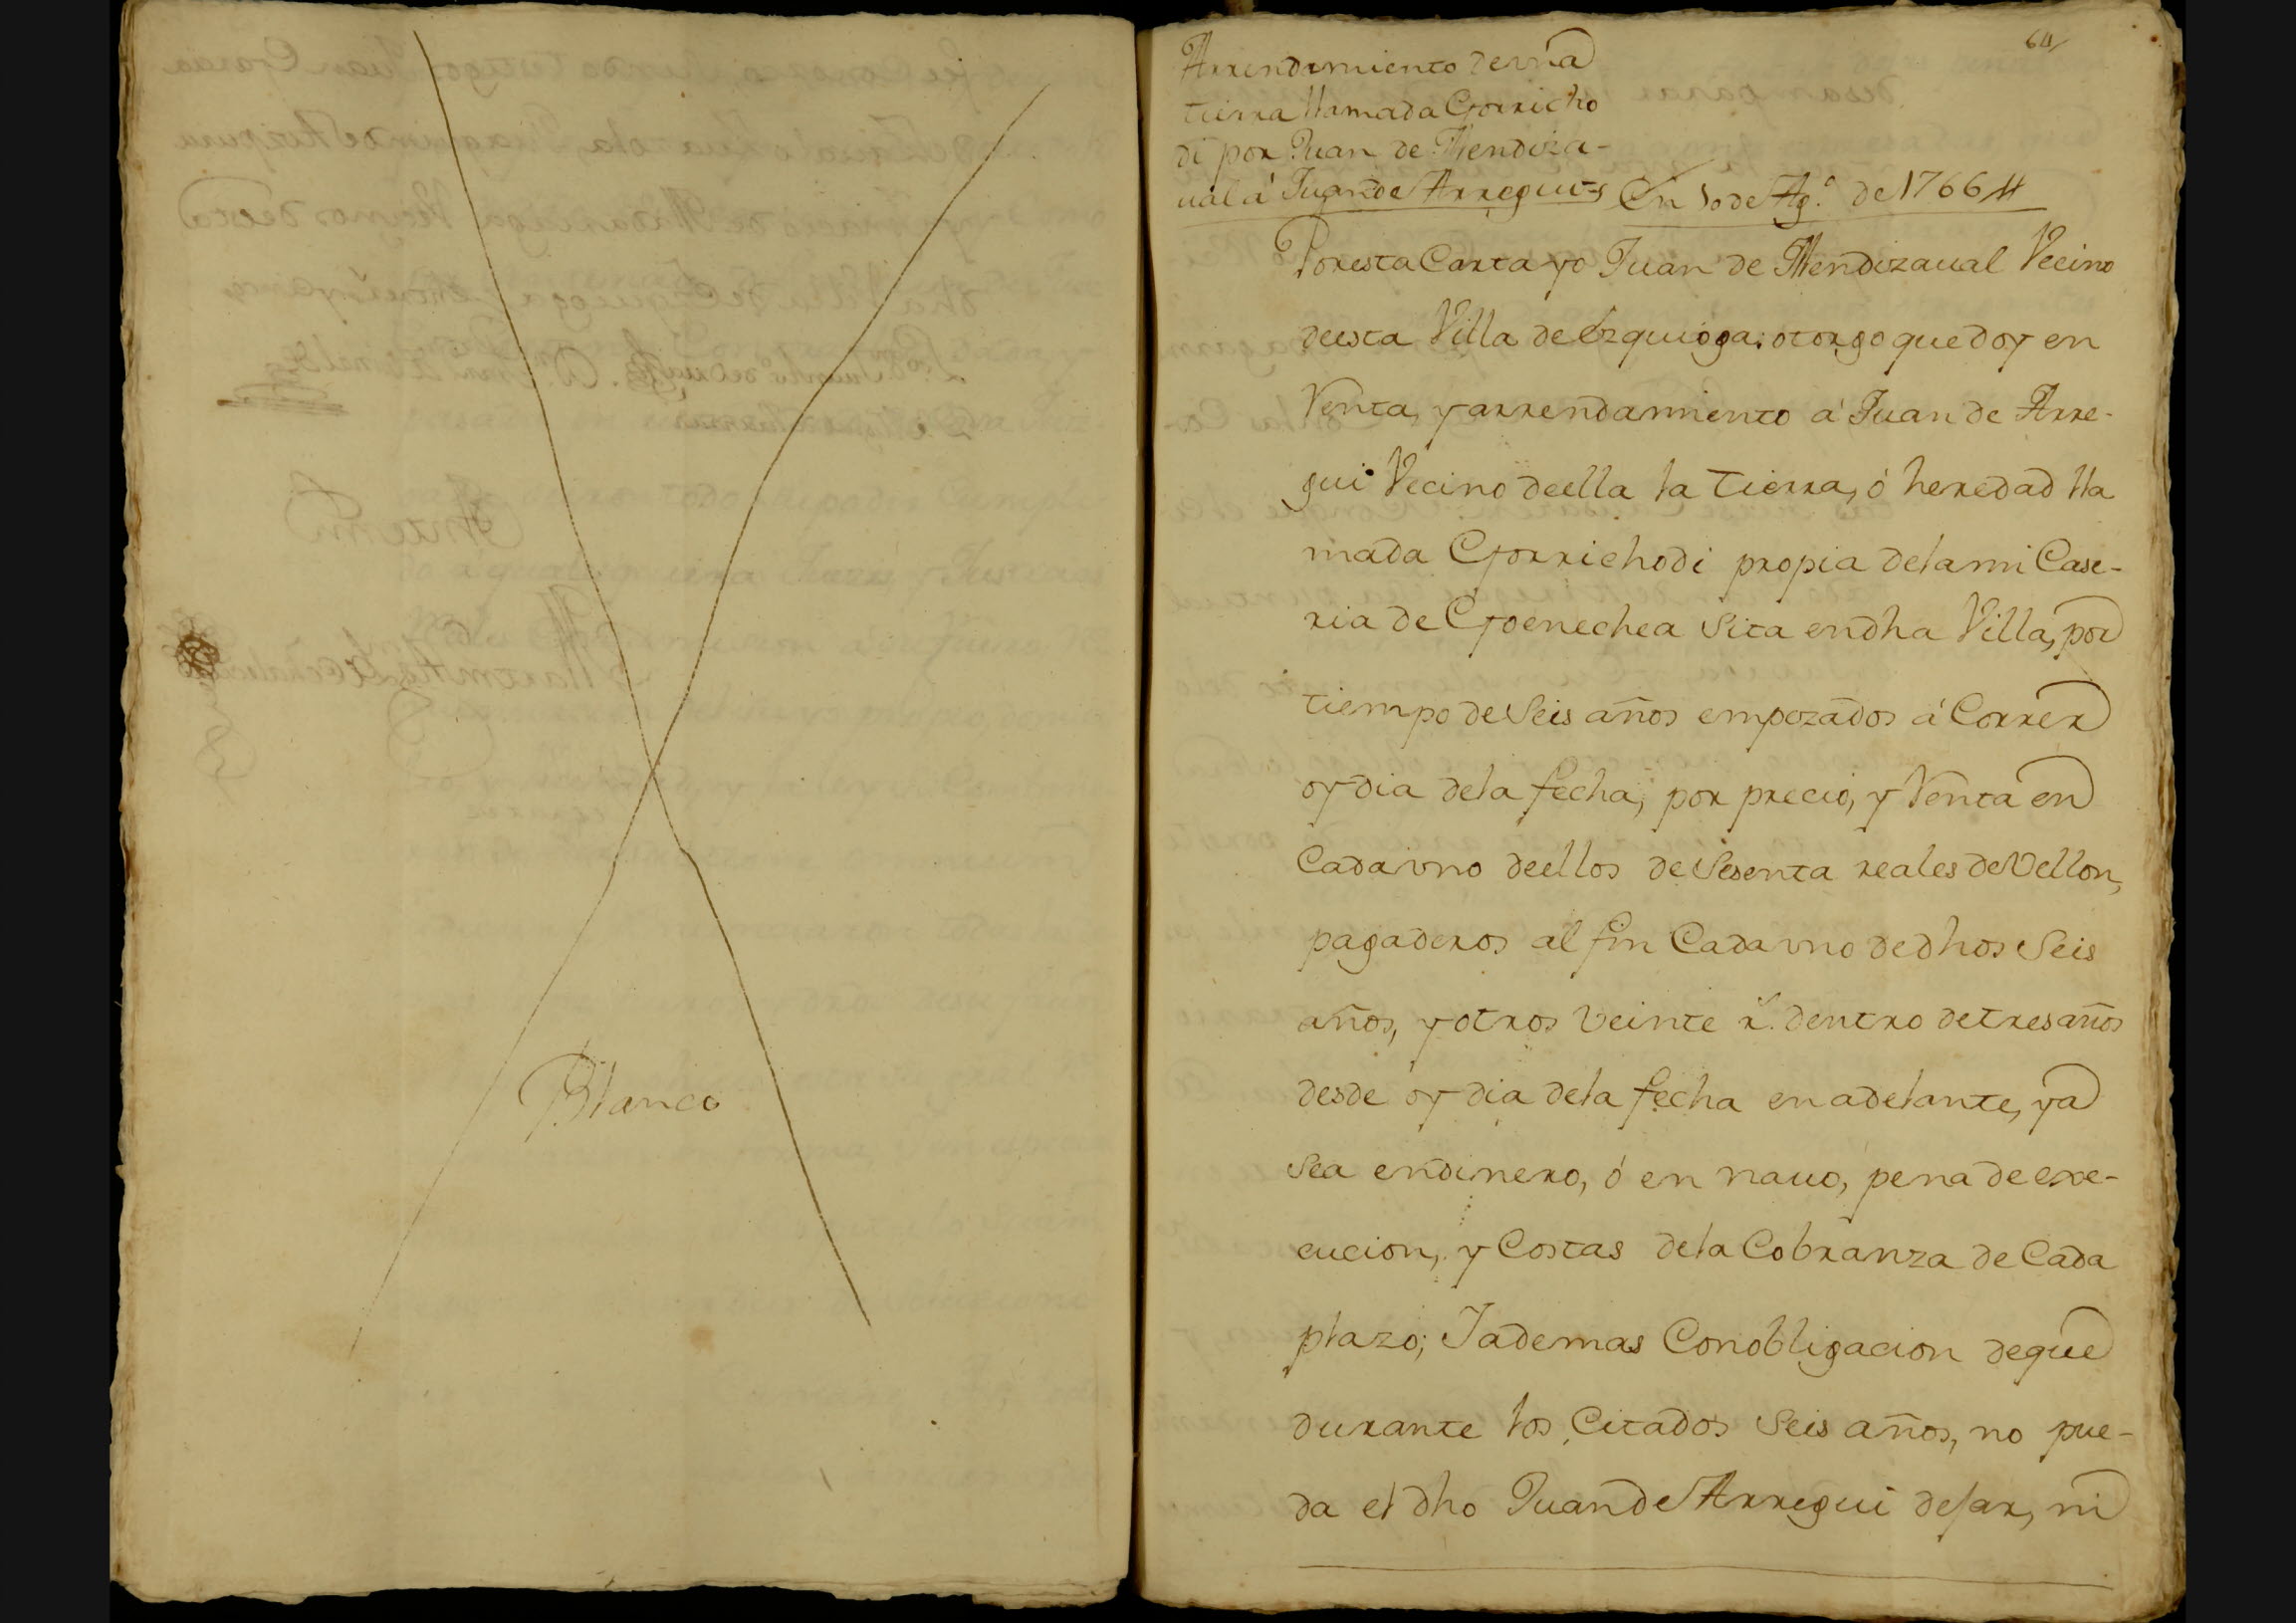 Blanco
64
Arrendamiento de vna
tierra llamada Gorricho
di por Juan de Mendiza-
ual á Juan de Arregui
En 10 de Ag.º de 1766
Por esta Carta yo Juan de Mendizaual Vecino
de esta Villa de Ezquioga: otorgo que doy en
Renta, y arrendamiento á Juan de Arre-
gui Vecino de ella la tierra, ó heredad lla
mada Gorrichodi propia de la mi Case-
ria de Goenechea Sita en dha Villa, por
tiempo de Seis años empezados á Correr
oy dia de la fecha, por precio, y Renta en
Cada vno de ellos de Sesenta reales de Vellon,
pagaderos al fin Cada vno de dhos Seis
años, y otros veinte r.s dentro de tres años
desde oy dia de la fecha en adelante, ya
Sea en dinero, ó en nauo, pena de exe-
cucion, y Costas de la Cobranza de Cada
plazo; Iademas Con obligacion de que
durante los Citados Seis años, no pue-
da el dho Juan de Arregui dejar, ni